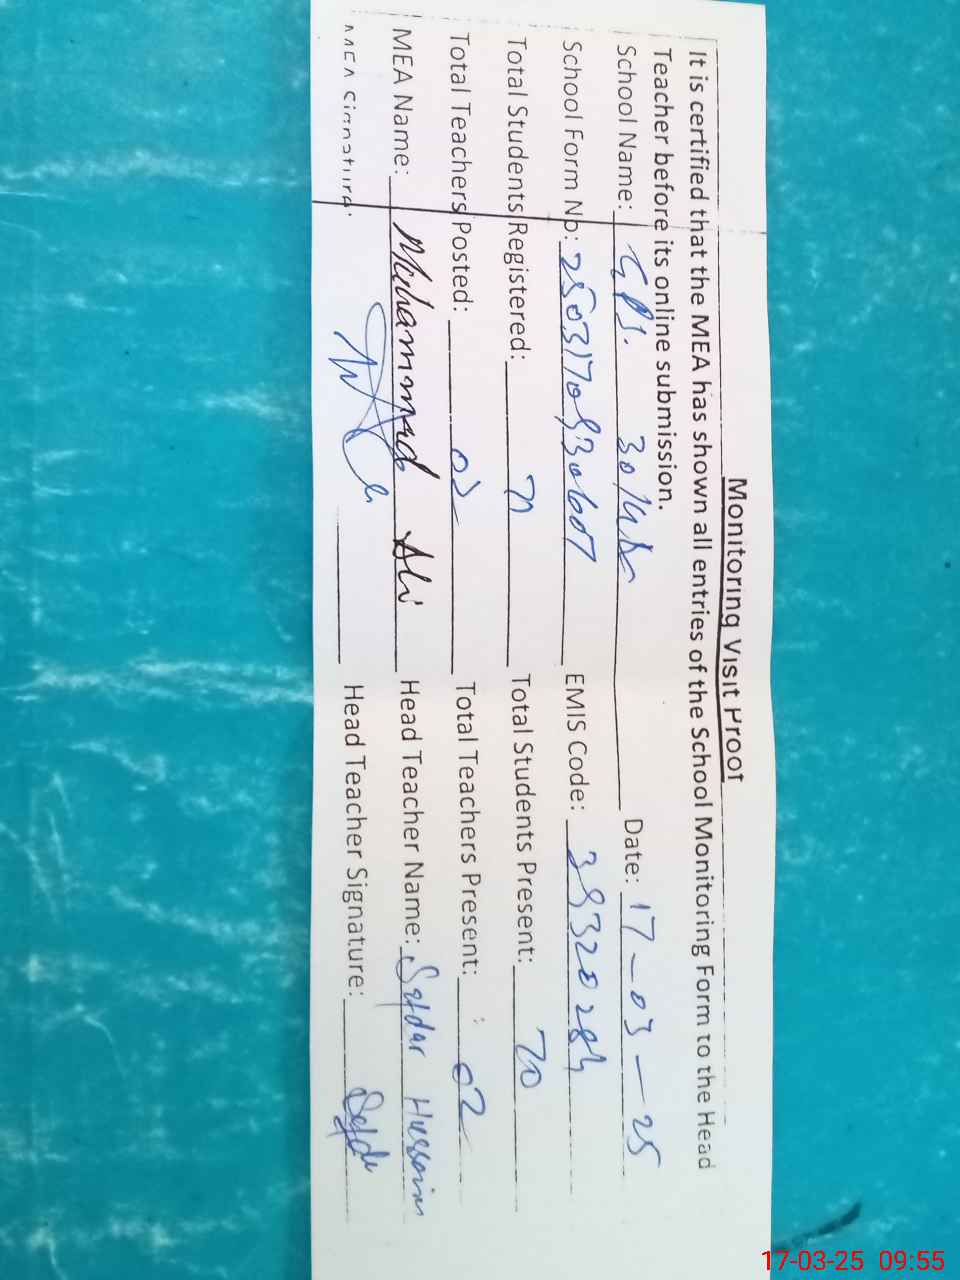 Monitoring Visit Proof
It is certified that the MEA has shown all entries of the School Monitoring Form to the Head
Teacher before its online submission.
School Name: GPS. 30/4R Date: 17-03-25
School Form No: EMIS Code: 39320284
Total Students Registered: 71 Total Students Present: 70
Total Teachers Posted: 02 Total Teachers Present: 02
MEA Name: Muhammad Ali Head Teacher Name: Safdar Hussain
MEA Signature: Head Teacher Signature:
17-03-25 09:55